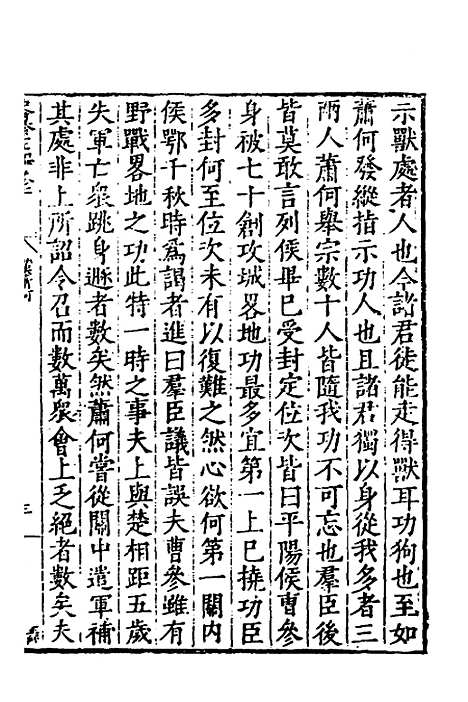 示獸處者人也今諸君徒能走得獸耳功狗也至如
蕭何發縱指示功人也且諸君獨以身從我多者三
兩人蕭何舉宗數十人皆隨我功不可忘也羣臣後
皆莫敢言列侯畢已受封定位次皆曰平陽侯曹參
身被七十創攻城畧地功最多宜第一上已撓功臣
多封何至位次未有以復難之然心欲何第一關內
侯鄂千秋時爲謁者進曰羣臣議皆誤夫曹參雖有
野戰畧地之功此特一時之事夫上與楚相距五歲
失軍亡衆跳身遯者數矣然蕭何嘗從關中遣軍補
其處非上所詔令召而數萬衆會上乏絕者數矣夫
三